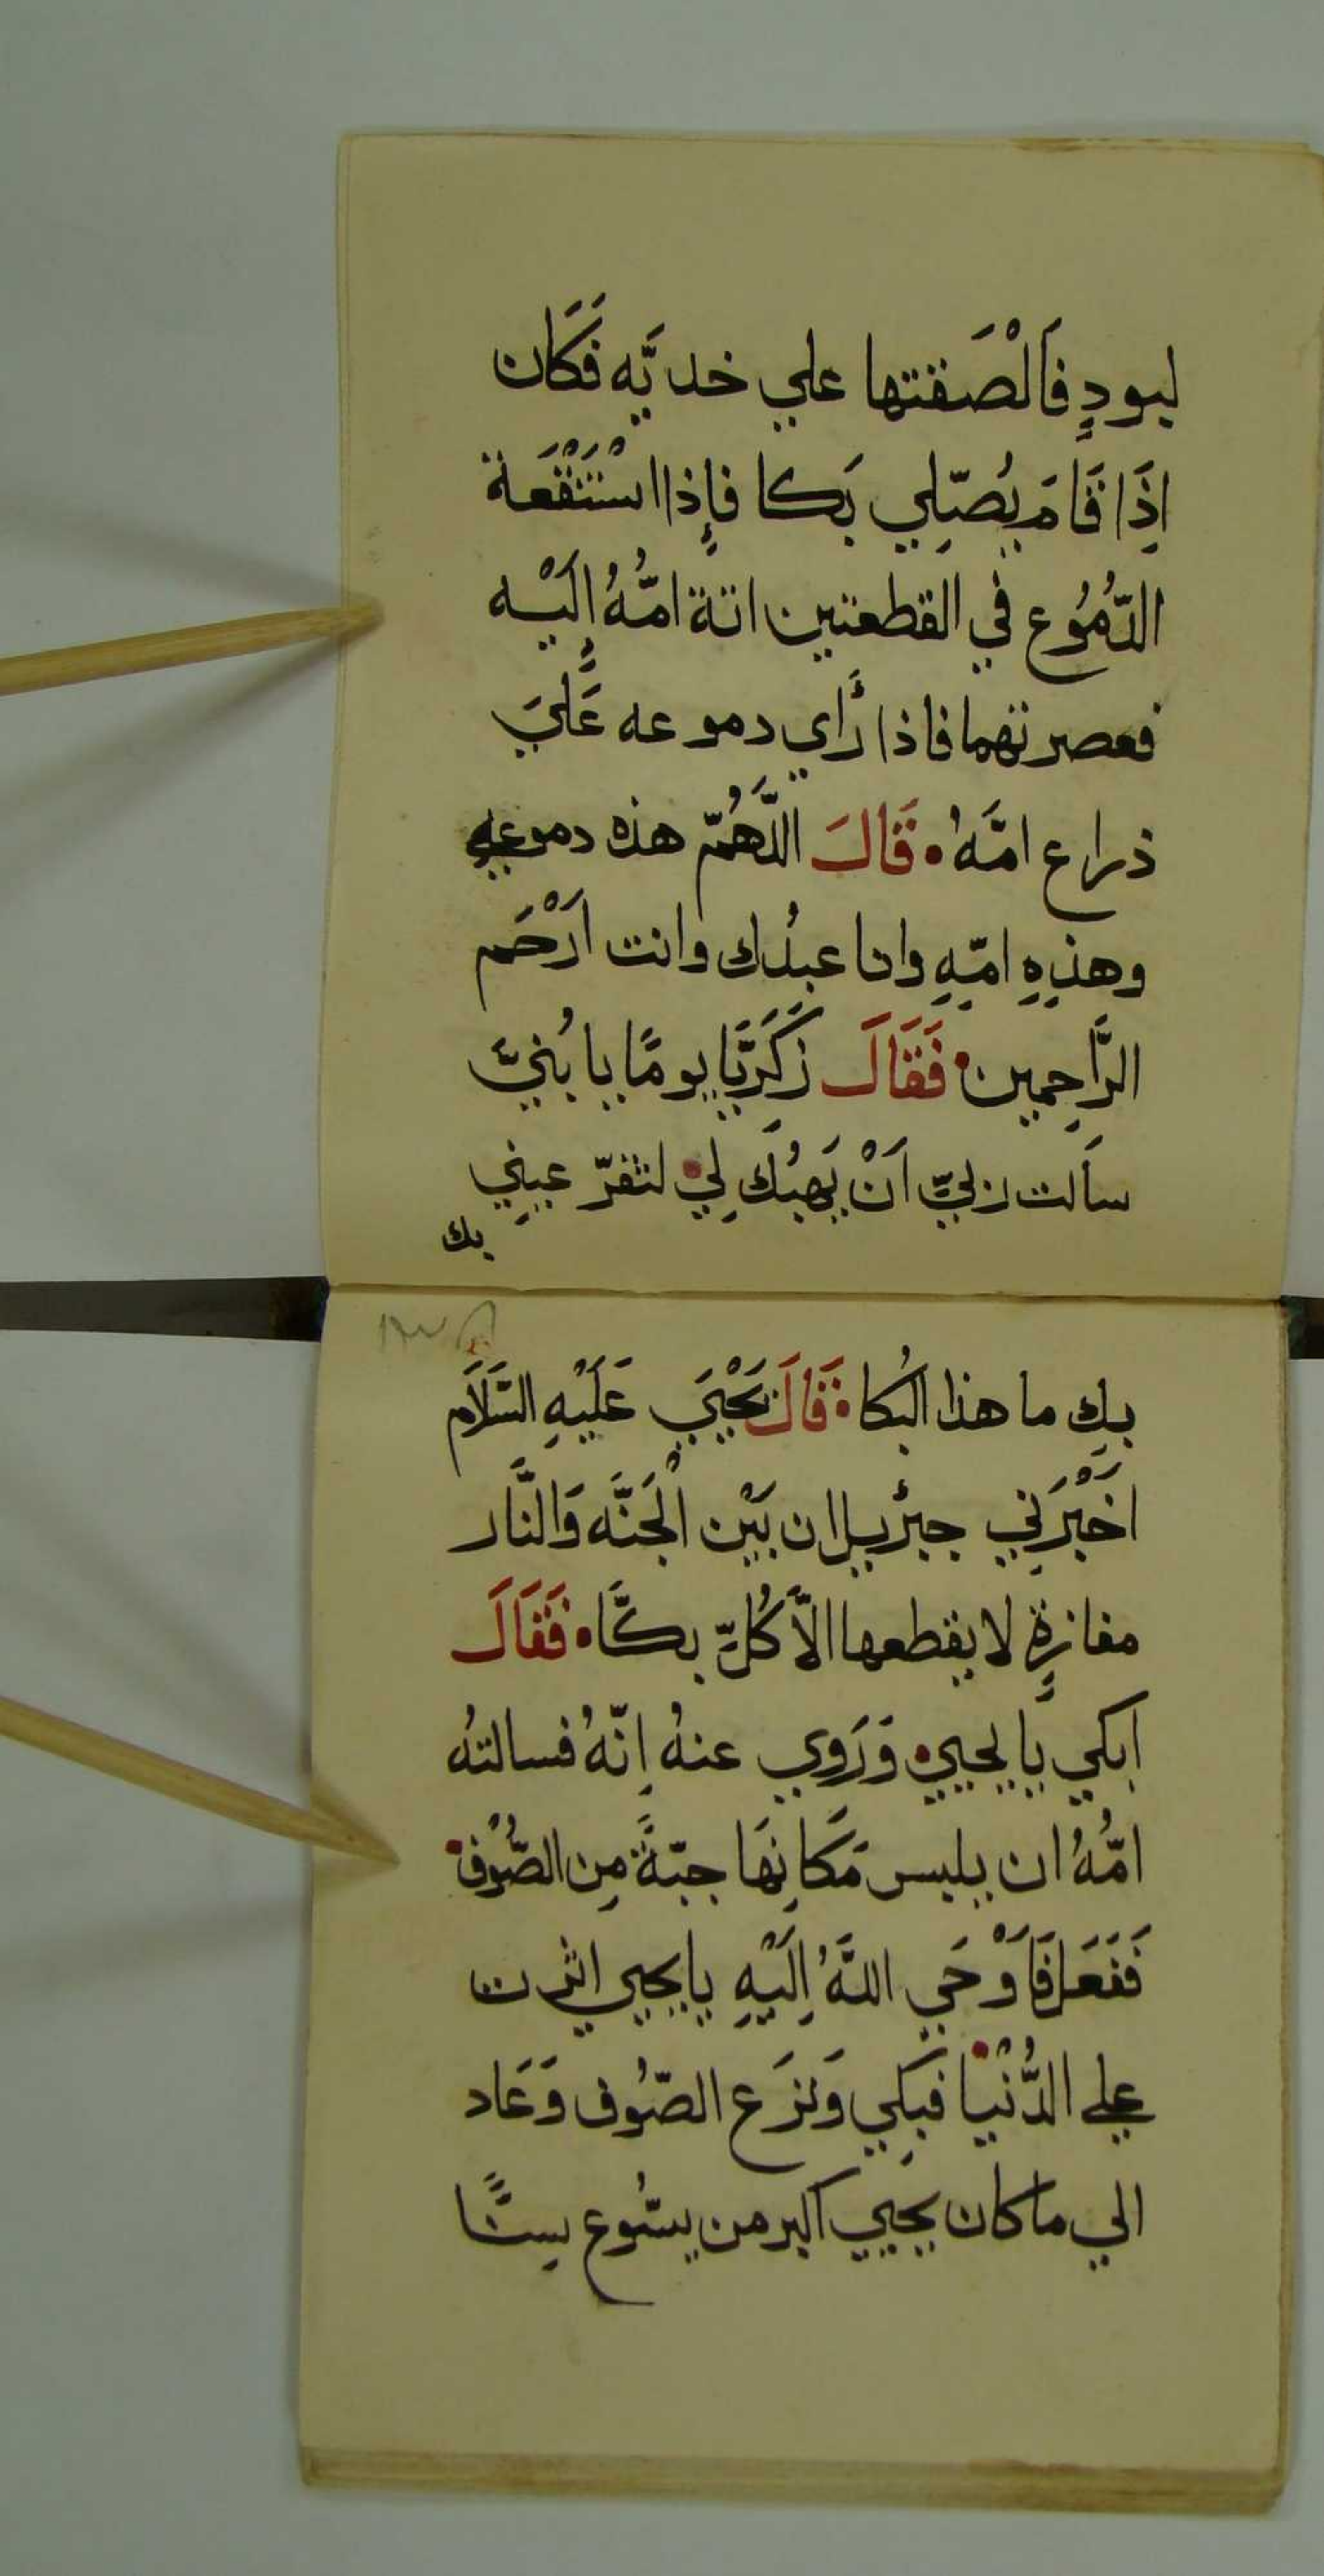 ليودٍ فَالْصَقتها علي خديَّه فَكَان
اِذَا قَامَ يُصَلِّي بَكا فإِذا اسْتَنْقَعة
الدُّمُوع في القطعتين اتة امُّهُ إِلَيْه
فعصرتهما فاذا رَأي دموعه عَليَ
ذراع امَّهُ قَالَ اللَّهُمّ هذه دموعي
وهذِهِ امّهِ وانا عبدُك وانت اَرْحَم
الرَّاحِمين فَقَالَ زَكَرِيَّا يومًا يا بُنيّ
سالت ربيّ اَنْ يَهبُكَ لِي لتقرّ عينِي
بك
بِك ما هذا البُكا قَالَ يَحْيَي عَلَيْهِ السَّلَام
اخَبْرَنِي جبرْيل ان بَيْن الْجَنَّه وَالنَّار
مفازةٍ لا يقطعها الاَّ كُلّ بكَّا فَقَالَ
ابكي يا يحيي وَرَوي عنهُ إنّهُ فسالتهُ
امُّهُ ان يلبس مَكانهَا جبّةً مِن الصُّوْف
فَفَعَل فَاَوْحَي اللهُ اِلَيْهِ يا يحيي اثرت
علي الدُّنْيا فبَكِي وَنزَع الصّوُف وَعَاد
الي ما كان يحيي اكبر من يسُّوع سِنًّا